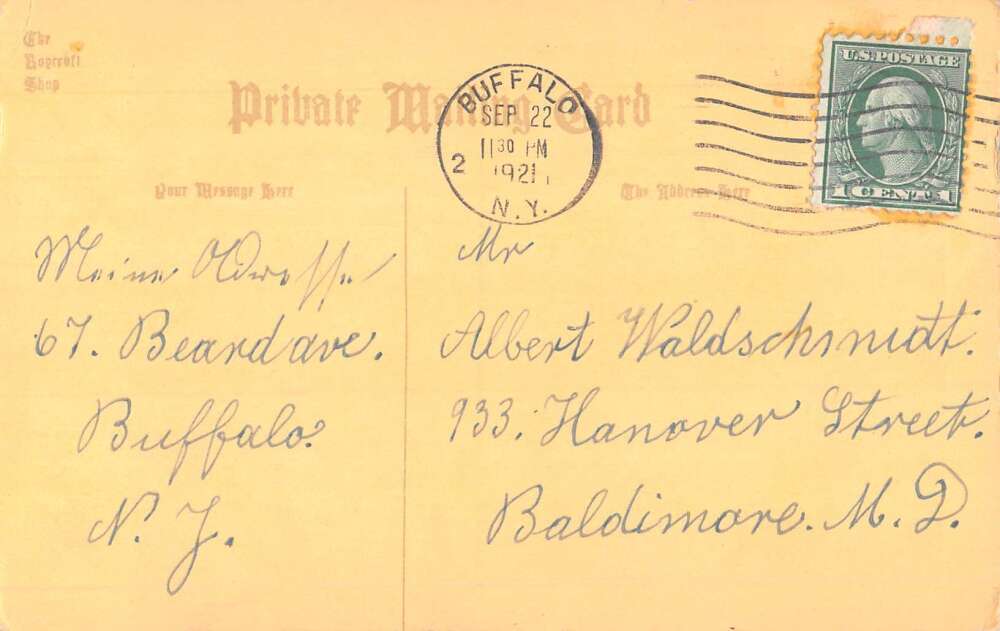 The
Roycroft
Shop
Private Mailing Card
BUFFALO
SEP 22
11 30 PM
2 1921
N.Y.
U.S. POSTAGE
1 CENT 1
Your Message Here
The Address Here
Meine
67. Beard ave.
Buffalo.
N. J.
Mr
Albert Waldschmidt.
933. Hanover Street.
Baldimore. M. D.